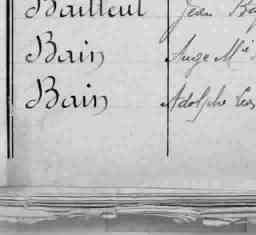 Bailleul Jean
Bain Ange M
Bain Adolphe